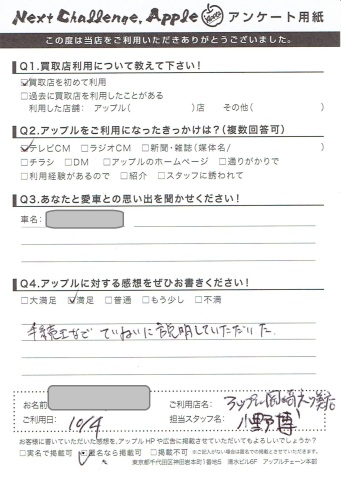 Next Challenge, Apple アンケート用紙
この度は当店をご利用いただきありがとうございました。
Q1.買取店利用について教えて下さい!
☑買取店を初めて利用
□過去に買取店を利用したことがある
利用した店舗: アップル( )店 その他( )
Q2.アップルをご利用になったきっかけは?(複数回答可)
☑テレビCM □ラジオCM □新聞・雑誌(媒体名/ )
□チラシ □DM □アップルのホームページ □通りがかりで
□利用経験があるので □紹介 □スタッフに誘われて
Q3.あなたと愛車との思い出を聞かせください!
車名:
Q4.アップルに対する感想をぜひお書きください!
□大満足 ☑満足 □普通 □もう少し □不満
手続きなど ていねいに説明していただいた。
お名前 ご利用店名: アップル岡崎
ご利用日: 10/4 担当スタッフ名: 小野博
お客様に書いていただいた感想を、アップルHPや広告に掲載させていただいてもよろしいでしょうか?
□実名で掲載可 ☑匿名なら掲載可 □掲載不可 ※ご記入がない場合は匿名での掲載とさせていただきます。
東京都千代田区神田岩本町1番地5 清水ビル6F アップルチェーン本部